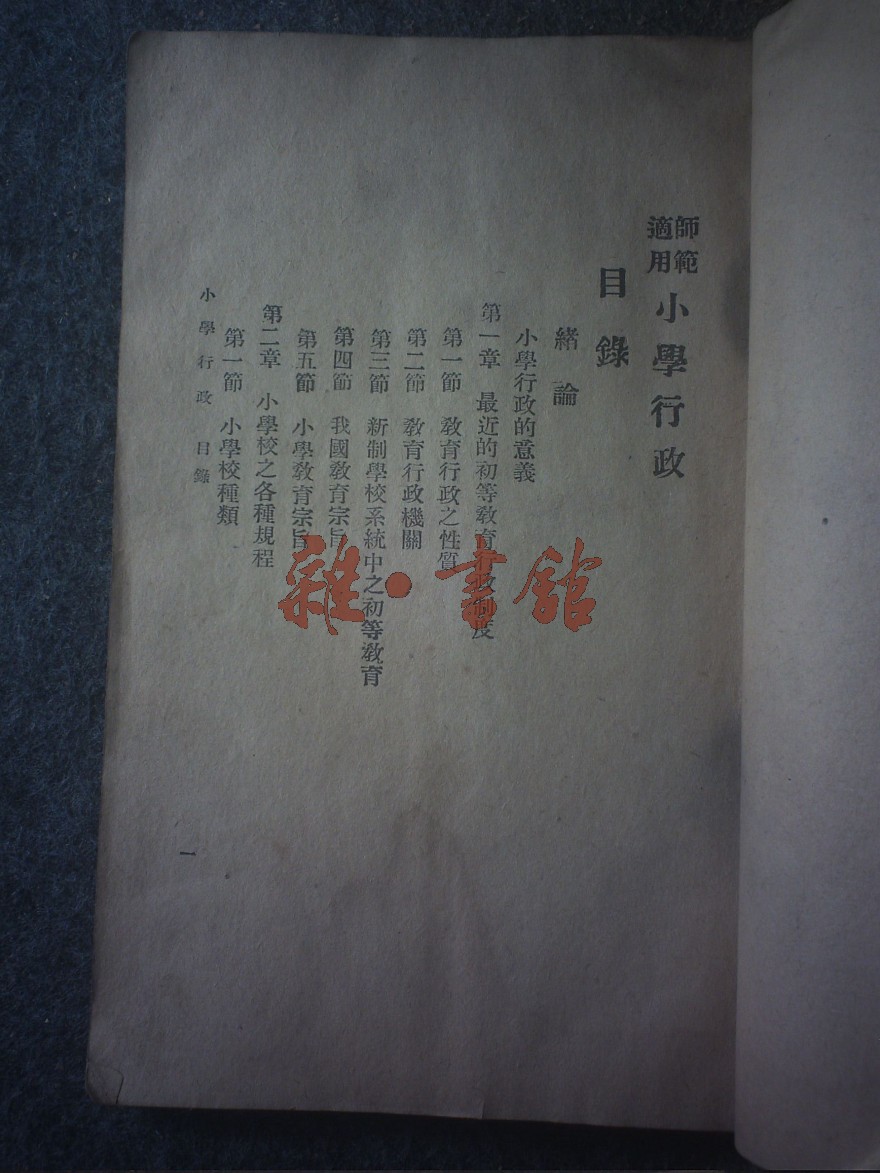 師範適用 小學行政
目錄
緒論
小學行政的意義
第一章 最近的初等教育行政制度
第一節 教育行政之性質
第二節 教育行政機關
第三節 新制學校系統中之初等教育
第四節 我國教育宗旨
第五節 小學教育宗旨
第二章 小學校之各種規程
第一節 小學校種類
小學行政 目錄
一
雜·書館